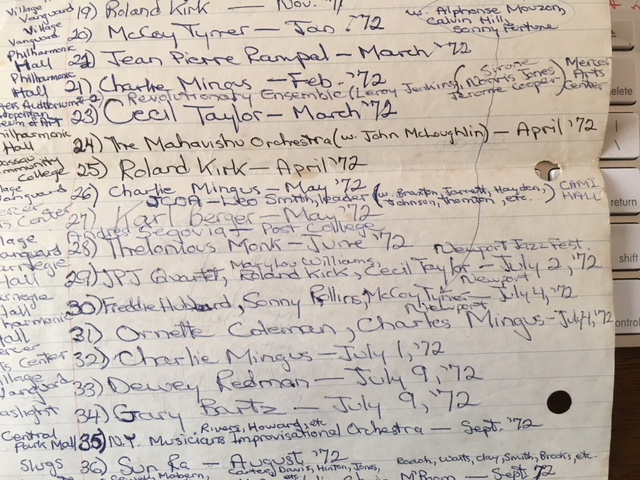 Village Vanguard 19) Roland Kirk — Nov. '71
w. Alphonse Mouzon,
Calvin Hill,
Sonny Fortune
Village Vanguard 20) McCoy Tyner — Jan. '72
Philharmonic Hall Jean Pierre Rampal — March '72
Philharmonic Hall 21) Charlie Mingus — Feb. '72
Revolutionary Ensemble (Leroy Jenkins, Sirone Norris Jones, Jerome Cooper) Mercer Arts Center
23) Cecil Taylor — March '72
Philharmonic Hall 24) The Mahavishu Orchestra (w. John McLoughlin) — April '72
Community College 25) Roland Kirk — April '72
Village Vanguard 26) Charlie Mingus — May '72
JCOA — Leo Smith, leader (w. Braxton, Jarrett, Hayden, Johnson, Thornton, etc.) CAMI HALL
Arts Center 27) Karl Berger — May '72
Andres Segovia — Post College
28) Thelonious Monk — June '72
Newport Jazz Fest.
Mary Lou Williams,
29) JPJ Quartet, Roland Kirk, Cecil Taylor — July 2, '72
Newport
30) Freddie Hubbard, Sonny Rollins, McCoy Tyner — July 4, '72
Newport
31) Ornette Coleman, Charles Mingus — July 4, '72
Arts Center 32) Charlie Mingus — July 1, '72
Village Vanguard 33) Dewey Redman — July 9, '72
34) Gary Bartz — July 9, '72
Rivers, Howard, etc
Central Park Mall 35) N.Y. Musicians Improvisational Orchestra — Sept. '72
Slugs 36) Sun Ra — August '72
Carter, Davis, Hinton, Jones, etc
Roach, Watts, Clay, Smith, Brooks, etc.
M'Boom — Sept '72
elete
return
shift